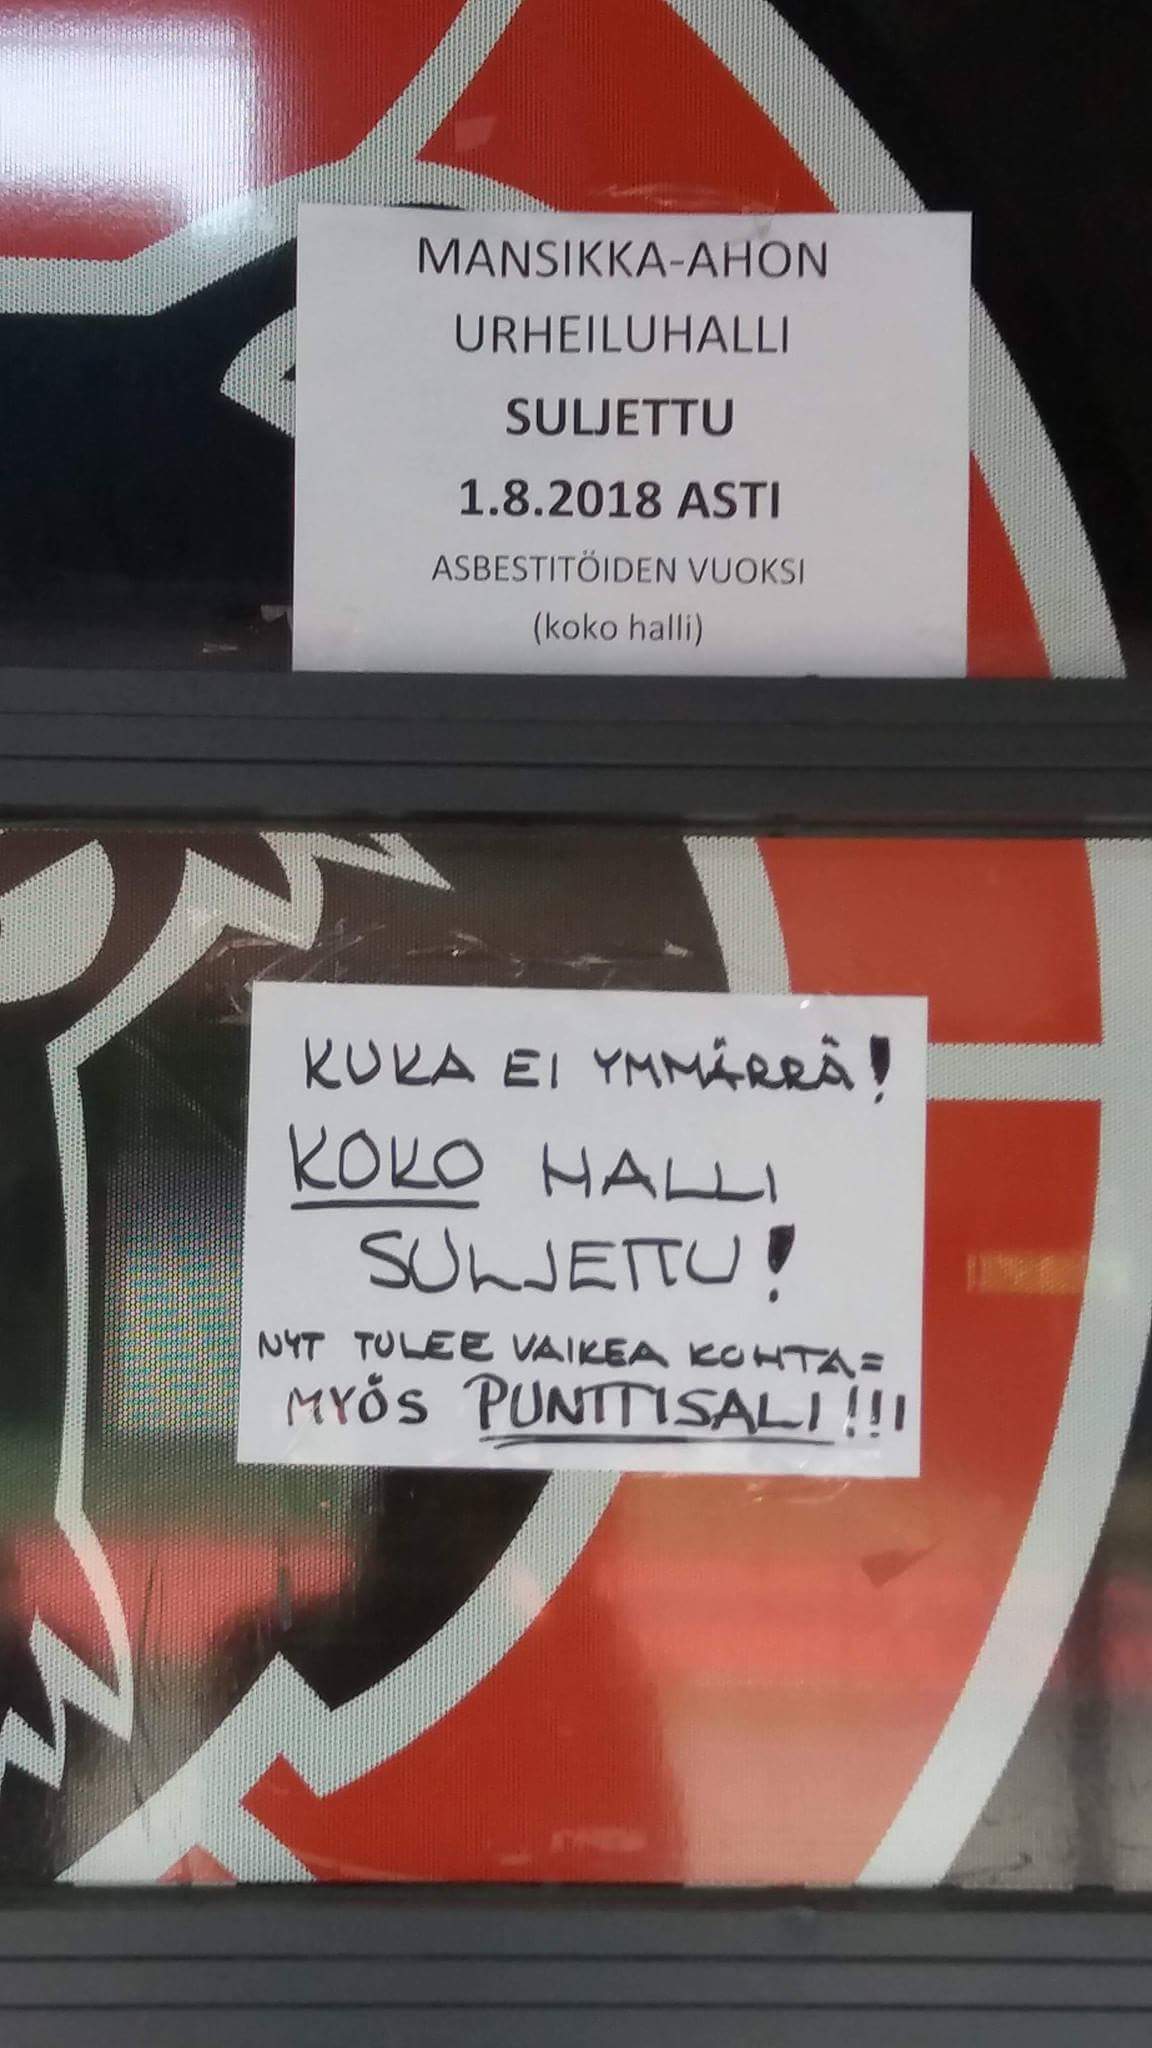 MANSIKKA-AHON
URHEILUHALLI
SULJETTU
1.8.2018 ASTI
ASBESTITÖIDEN VUOKSI
(koko halli)
KUKA EI YMMÄRRÄ!
KOKO HALLI
SULJETTU!
NYT TULEE VAIKEA KOHTA=
MYÖS PUNTTISALI!!!